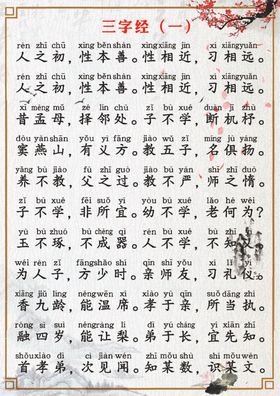 三字经（一）
rén zhī chū xìng běn shàn xìng xiāng jìn xí xiāng yuǎn
人之初，性本善。性相近，习相远。
rén zhī chū xìng běn shàn xìng xiāng jìn xí xiāng yuǎn
人之初，性本善。性相近，习相远。
xī mèng mǔ zé lín chǔ zǐ bù xué duàn jī zhù
昔孟母，择邻处。子不学，断机杼。
dòu yān shān yǒu yì fāng jiào wǔ zǐ míng jù yáng
窦燕山，有义方。教五子，名俱扬。
yǎng bù jiào fù zhī guò jiào bù yán shī zhī duò
养不教，父之过。教不严，师之惰。
zǐ bù xué fēi suǒ yí yòu bù xué lǎo hé wéi
子不学，非所宜。幼不学，老何为？
yù bù zhuó bù chéng qì rén bù xué bù zhī yì
玉不琢，不成器。人不学，不知义。
wéi rén zǐ fāng shào shí qīn shī yǒu xí lǐ yí
为人子，方少时。亲师友，习礼仪。
xiāng jiǔ líng néng wēn xí xiào yú qīn suǒ dāng zhí
香九龄，能温席。孝于亲，所当执。
róng sì suì néng ràng lí dì yú zhǎng yí xiān zhī
融四岁，能让梨。弟于长，宜先知。
shǒu xiào dì cì jiàn wén zhī mǒu shù shí mǒu wén
首孝弟，次见闻。知某数，识某文。